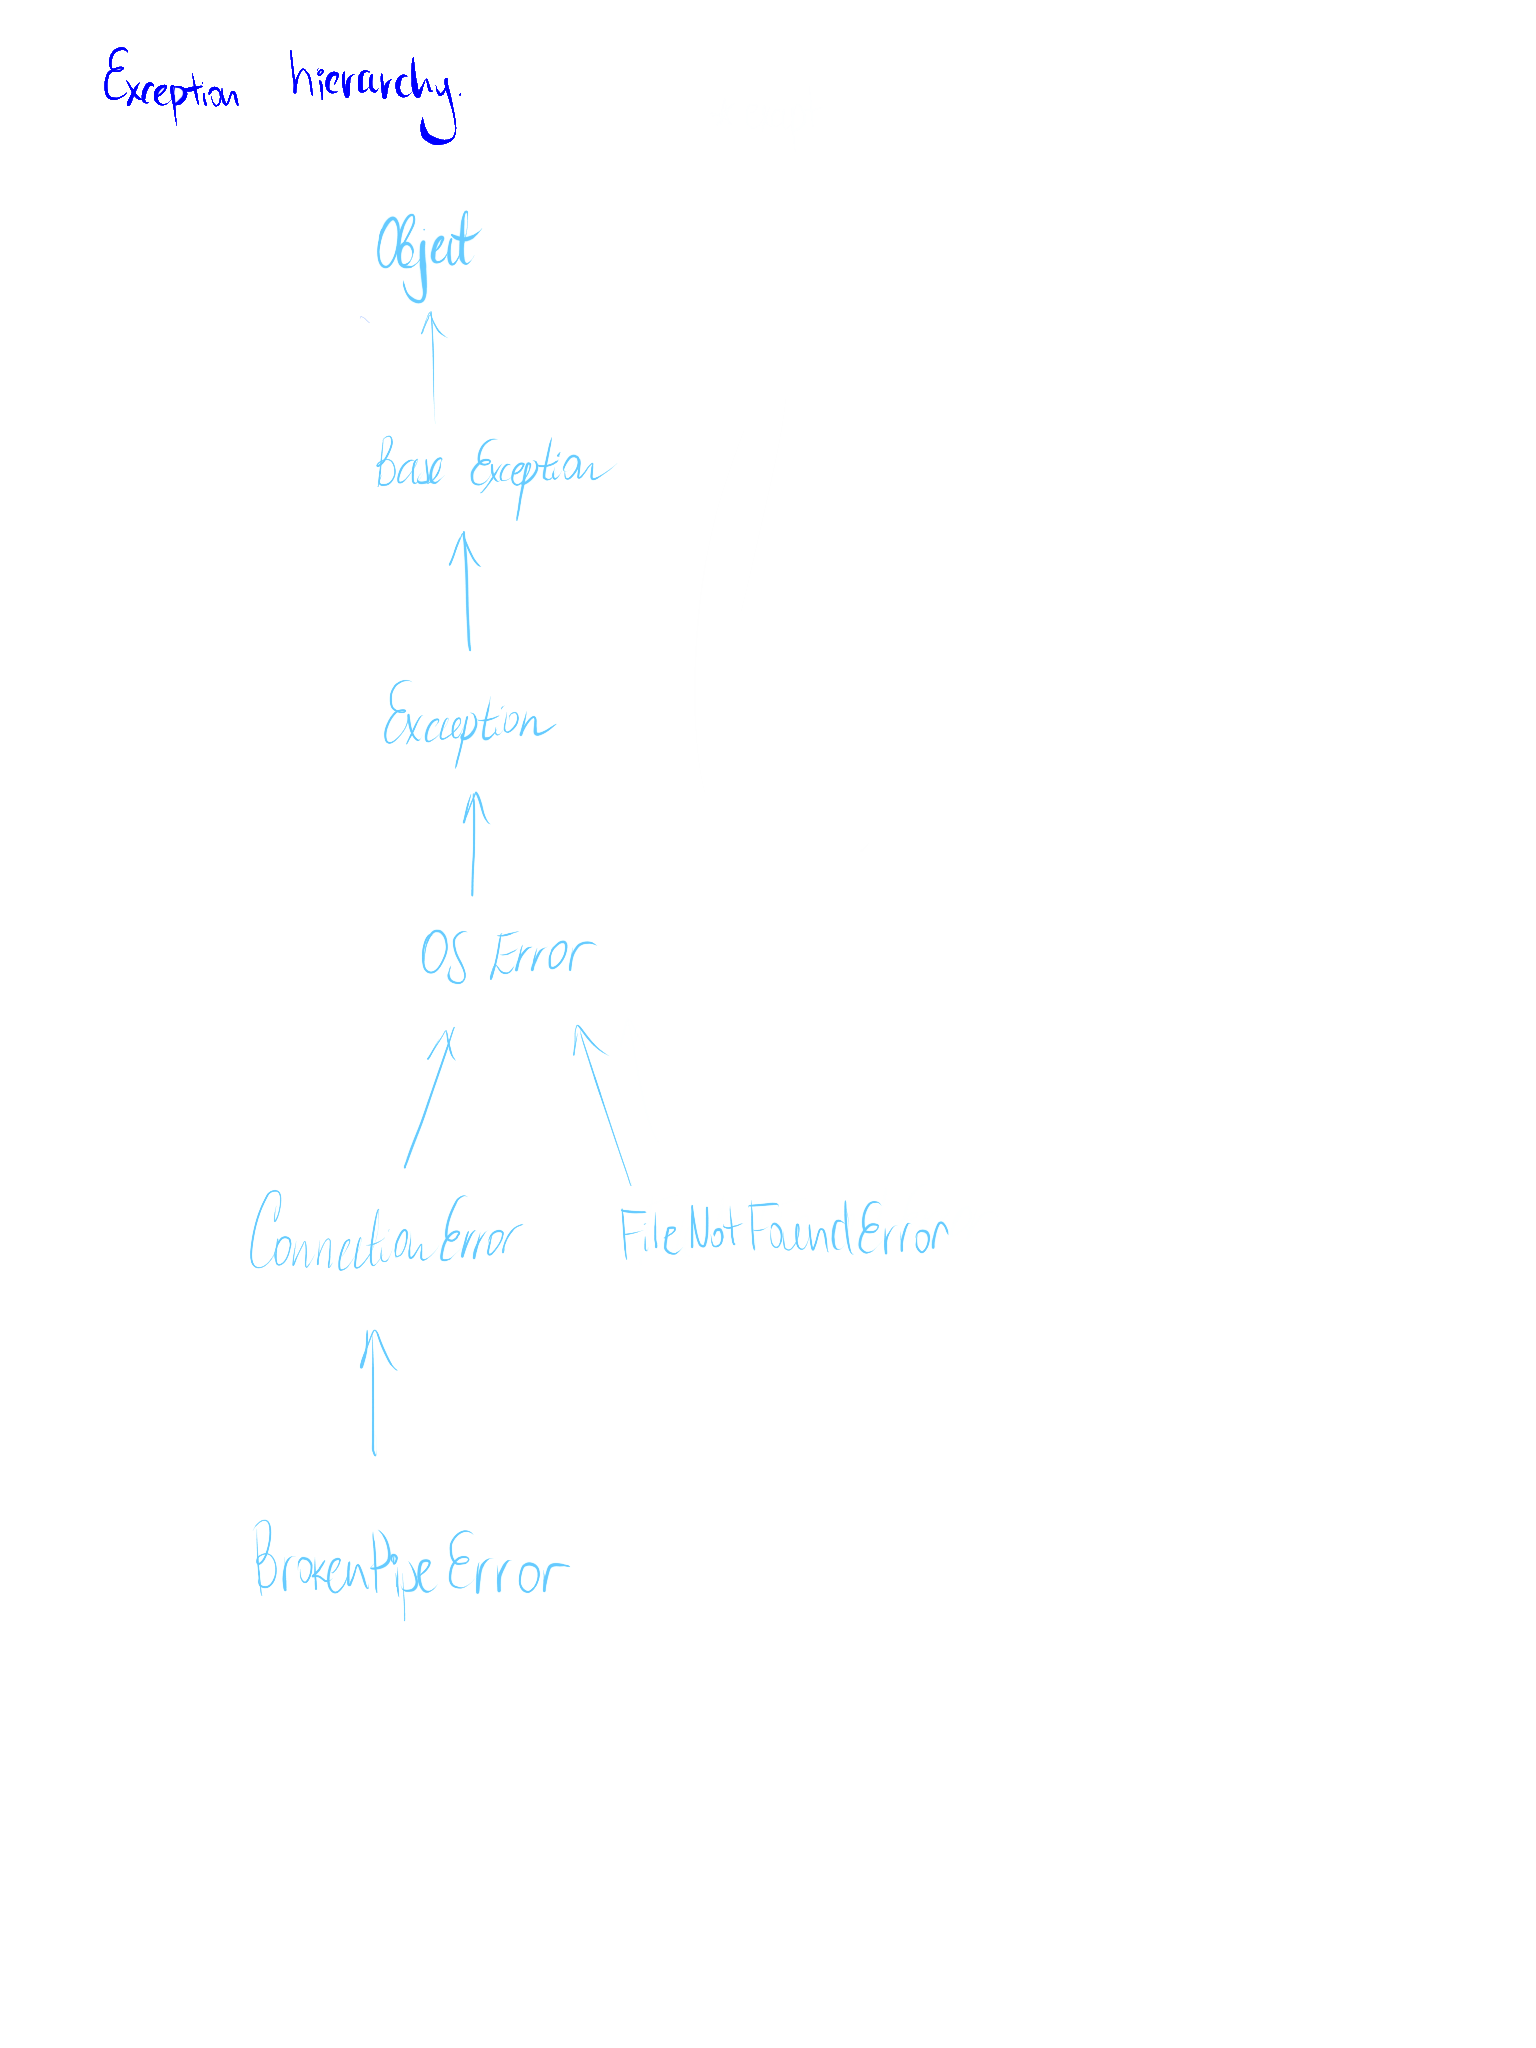 Exception hierarchy.
Object
Base Exception
Exception
OS Error
ConnectionError FileNotFoundError
BrokenPipeError